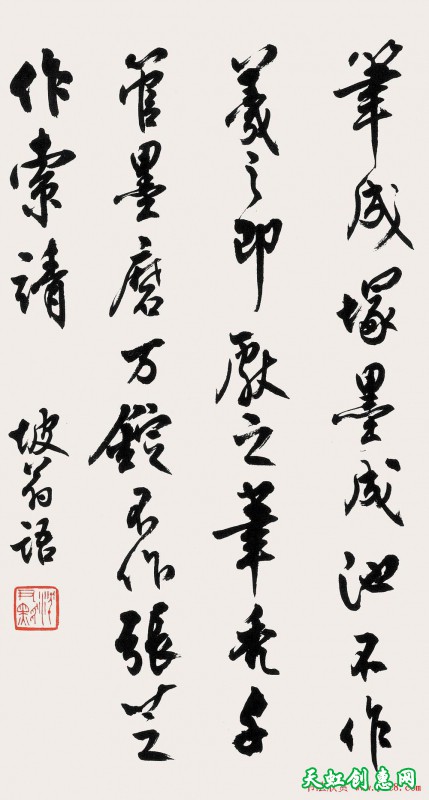 筆成塚墨成池不作
羲之即獻之筆禿千
管墨磨万錠不作張芝
作索靖
坡翁語
天虹创惠网